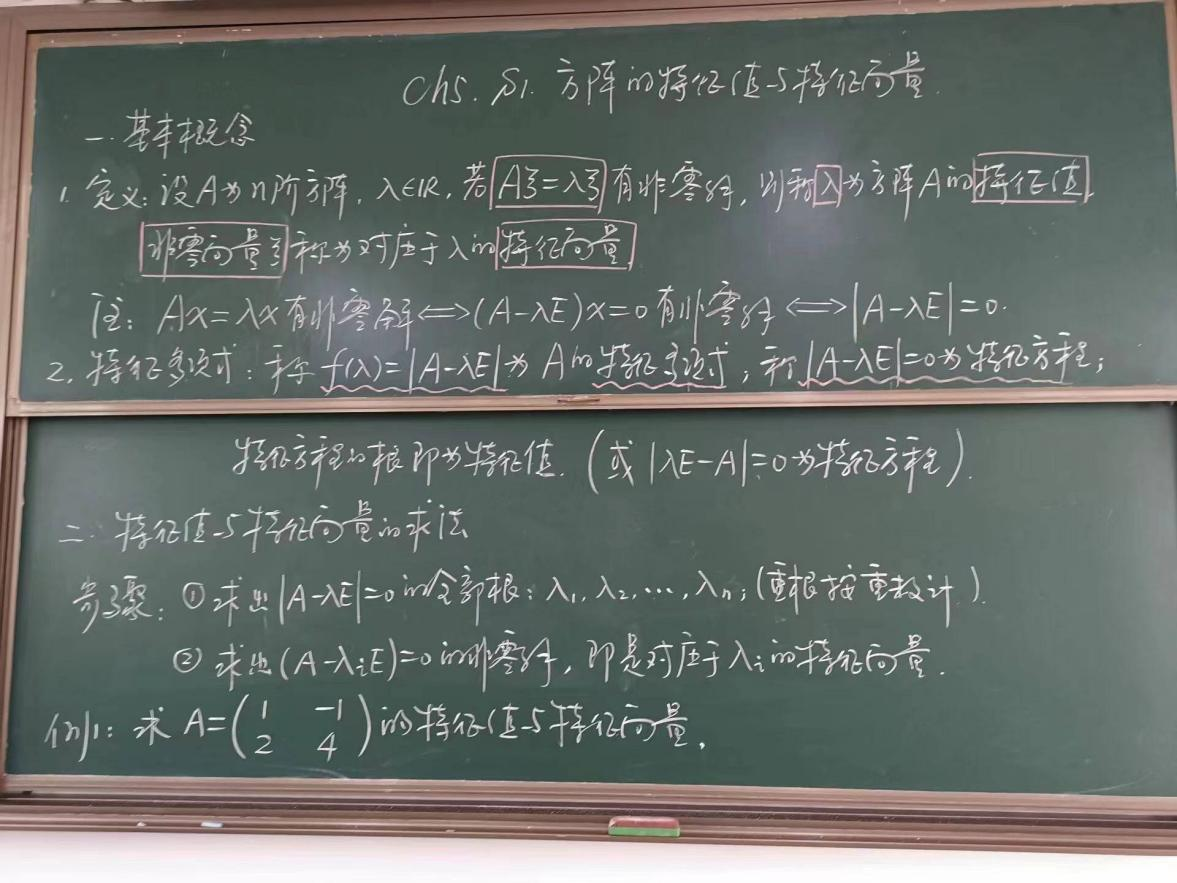 Ch5. §1. 方阵的特征值与特征向量.
一. 基本概念
1. 定义: 设A为n阶方阵, λ∈R, 若 Aξ=λξ 有非零解, 则称λ为方阵A的特征值.
非零向量ξ称为对应于λ的特征向量.
注: Ax=λx有非零解⟺(A-λE)x=0有非零解⟺|A-λE|=0.
2. 特征多项式: 称f(λ)=|A-λE|为A的特征多项式, 称|A-λE|=0为特征方程;
特征方程的根即为特征值. (或|λE-A|=0为特征方程).
二. 特征值与特征向量的求法
步骤: ①求出|A-λE|=0的全部根: λ₁, λ₂, ⋯, λₙ; (重根按重数计).
②求出(A-λᵢE)=0的非零解, 即是对应于λᵢ的特征向量.
例1: 求 A=(1 -1
2 4)的特征值与特征向量.